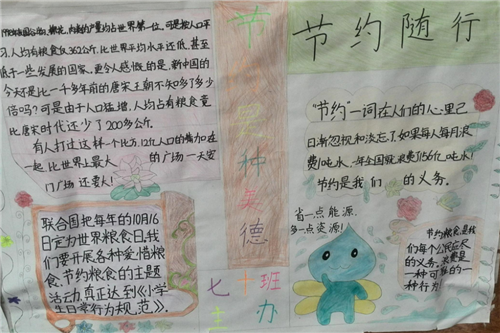 棉花、肉类的产量均占世界第一位,可是按人口平
习,人均有粮食仅362公斤,比世界平均水平还低,甚至
低于一些发展的国家。更令人感慨的是,新中国的
今天还是比一千多年前的唐宋王朝不知多了多少
倍吗?可是由于人口猛增,人均占有粮食竟
比唐宋时代还少了200多公斤。
有人打过这样一个比方,12亿人口的
一起,比世界上最大的广场一天安
门广场还要大!
联合国把每年的10月16
日定为世界粮食日,我
们要开展各种爱惜粮
食、节约粮食的主题
活动,真正达到《小学
生日常行为规范》。
节
种
美
德
七十班
主办
节约随行
"节约"一词在人们的心里已
日渐忽视和淡忘了,如果每人每月浪
费1吨水,一年全国就浪费156亿吨水!
节约是我们的义务。
省一点能源,
多一点资源!
节约粮食是我
们每个公民应尽
的义务,浪费是
一种可耻的一
种行为